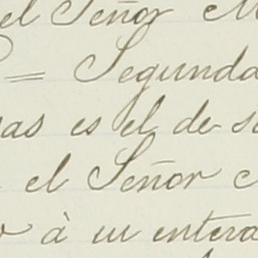 el Señor
= Segunda
as es el de s
el Señor
à su entera